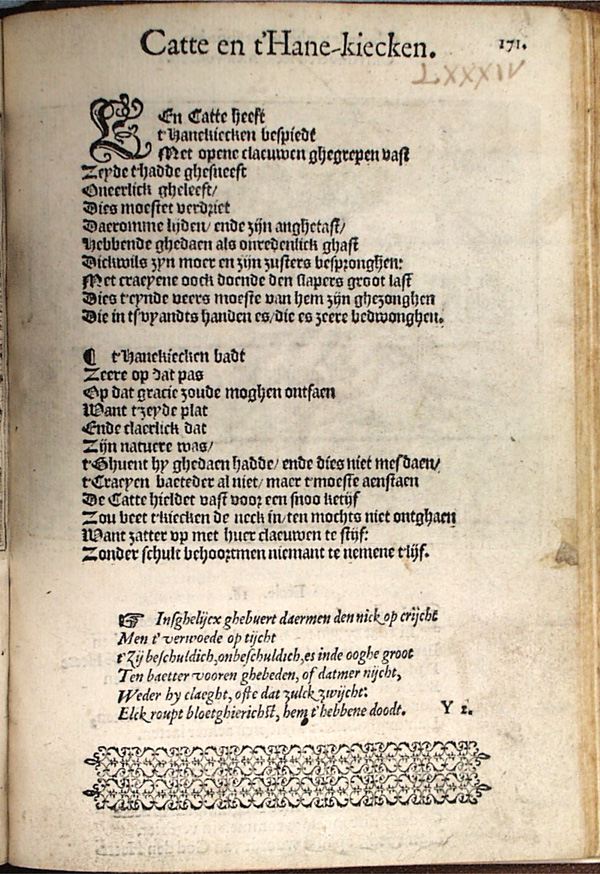 Catte en t'Hane-kiecken. 171.
LXXXIV
EEn Catte heeft
t'Hanekiecken bespiedt
Met opene claeuwen ghegrepen vast
Zeyde t'hadde ghesneeft
Oneerlick gheleeft/
Dies moestet verdriet
Daeromme lijden/ ende zijn anghetast/
Hebbende ghedaen als onredenlick ghast
Dickwils zyn moer en zijn zusters bespronghen:
Met craeyene oock doende den slapers groot last
Dies t'eynde veers moeste van hem zijn ghezonghen
Die in tsvyandts handen es/ die es zeere bedwonghen.
¶ t'Hanekiecken badt
Zeere op dat pas
Op dat gracie zoude moghen ontfaen
Want t'zeyde plat
Ende claerlick dat
Zijn natuere was/
t'Ghuent hy ghedaen hadde/ ende dies niet mesdaen/
t'Craeyen baeteder al niet/ maer t'moeste aenstaen
De Catte hieldet vast voor een snoo ketijf
Zou beet t'kiecken de neck in/ ten mochts niet ontghaen
Want zatter vp met huer claeuwen te stijf:
Zonder schult behoortmen niemant te nemene t'lijf.
☞ Insghelijcx ghebuert daermen den nick op crijcht
Men t'verwoede op tijcht
t'Zij beschuldich, onbeschuldich, es inde ooghe groot
Ten baetter vooren ghebeden, of datmer nijcht,
Weder hy claeght, ofte dat zulck zwijcht:
Elck roupt bloetghierichst, hem t'hebbene doodt. Y 2.